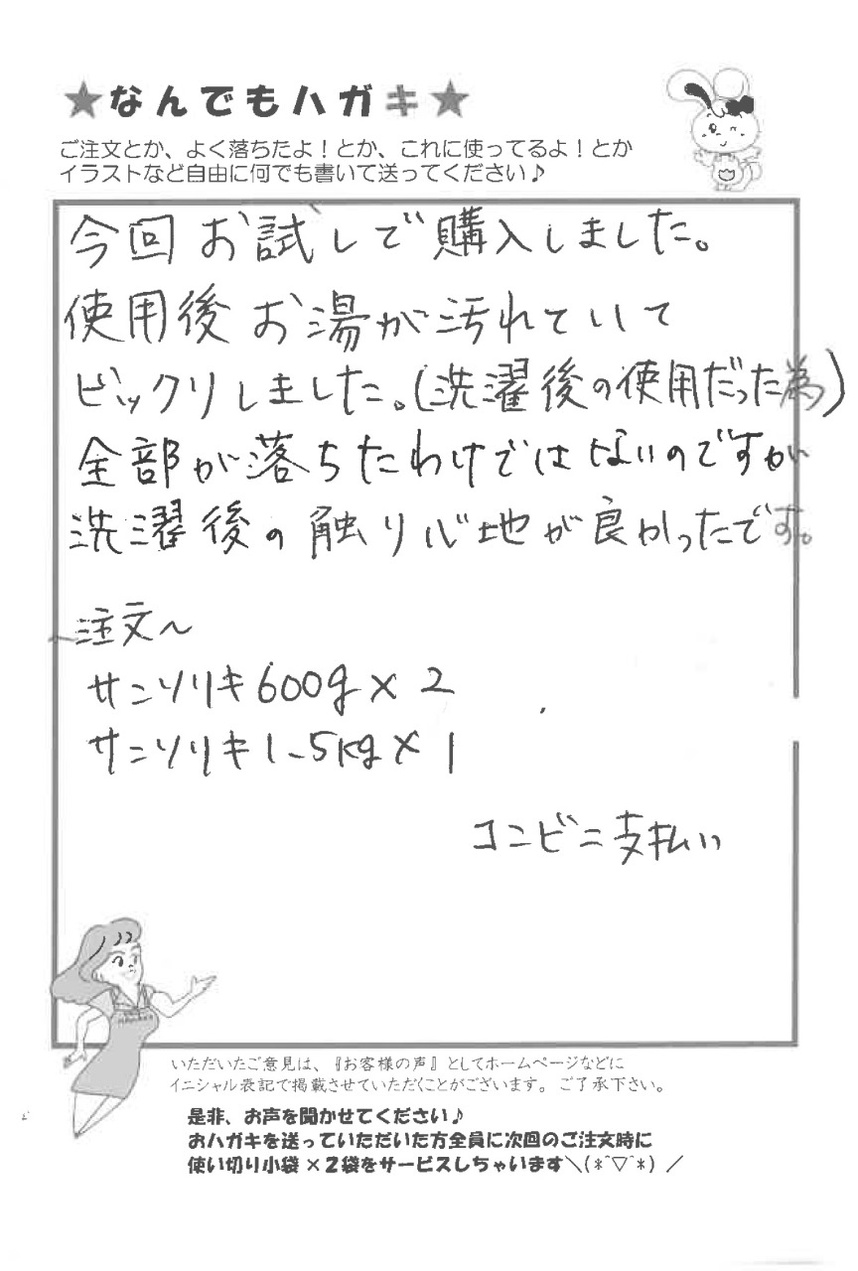 ★なんでもハガキ★
ご注文とか、よく落ちたよ！とか、これに使ってるよ！とか
イラストなど自由に何でも書いて送ってください♪
今回お試しで購入しました。
使用後お湯が汚れていて
ビックリしました。(洗濯後の使用だった為)
全部が落ちたわけではないのですが
洗濯後の触り心地が良かったです。
~注文~
サンソリキ600g×2
サンソリキ1.5kg×1
コンビニ支払い
いただいたご意見は、『お客様の声』としてホームページなどに
イニシャル表記で掲載させていただくことがございます。ご了承下さい。
是非、お声を聞かせてください♪
おハガキを送っていただいた方全員に次回のご注文時に
使い切り小袋×2袋をサービスしちゃいます＼(*^▽^*)／